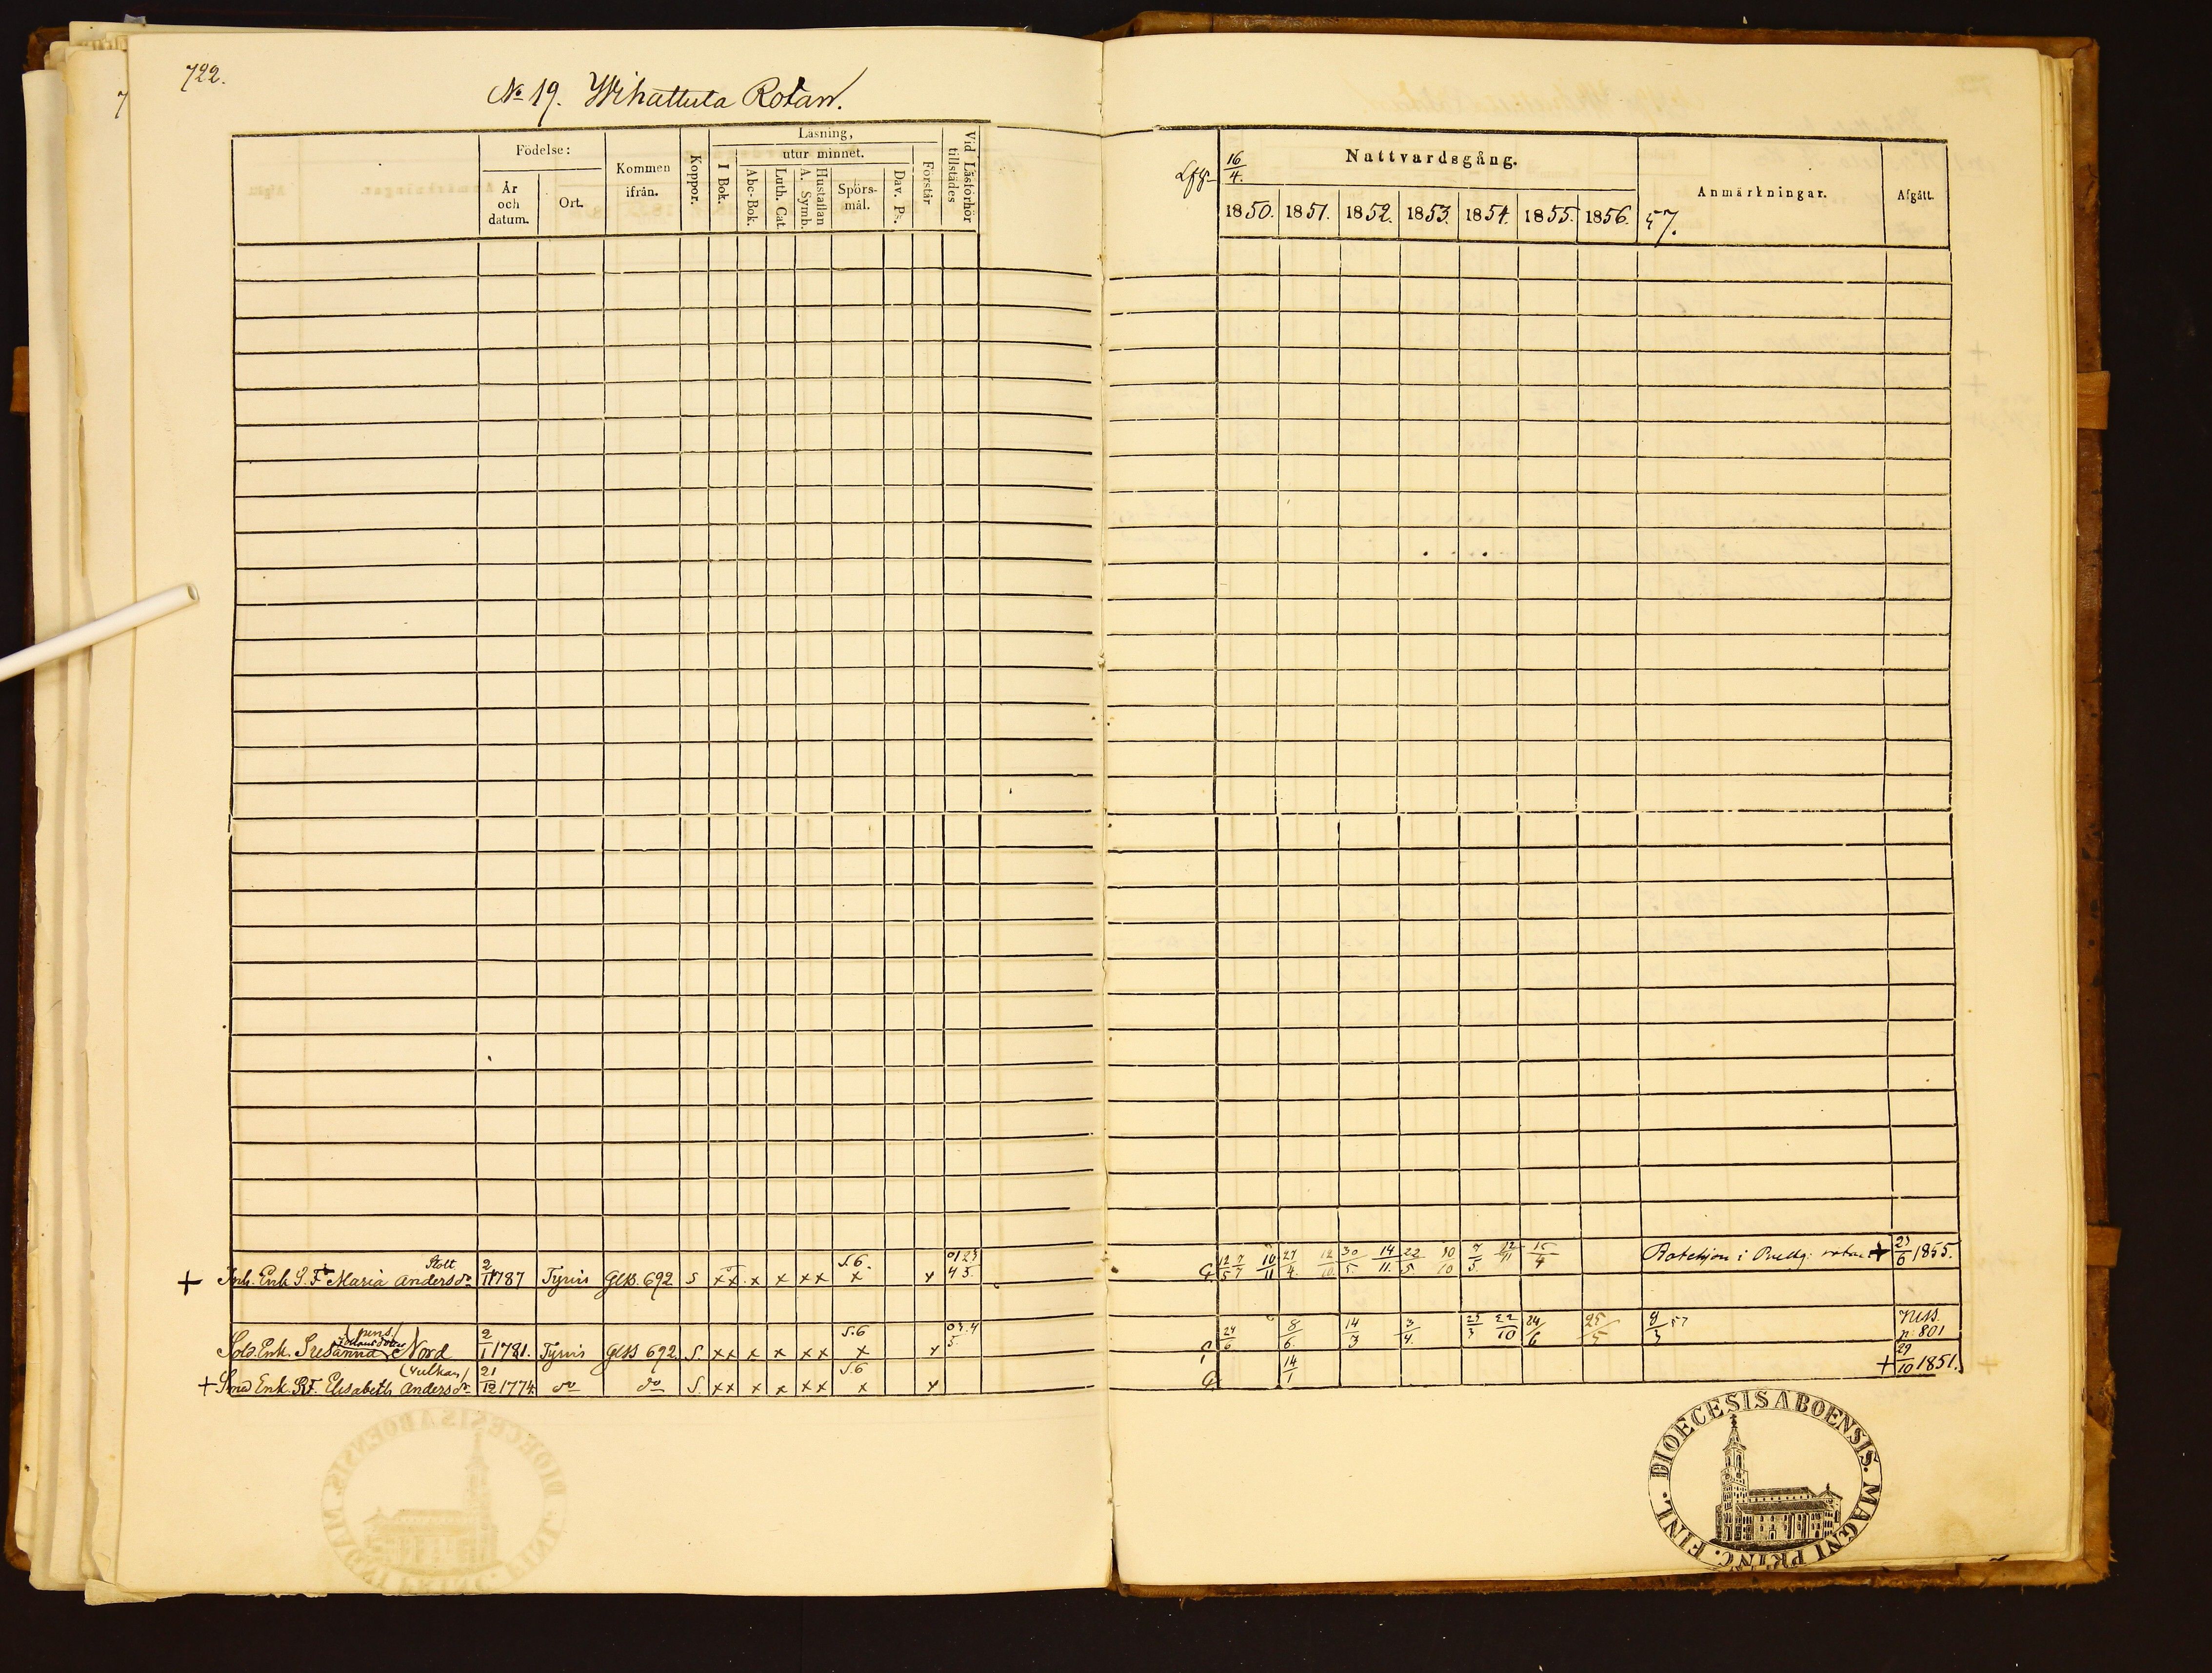 722.
No 19. Wihattula Rotan.
Födelse:
År och datum.
Ort.
Kommen ifrån.
Koppor.
Läsning,
I Bok.
utur minnet.
Abc-Bok.
Luth. Cat.
Hustaflan A. Symb.
Spörs-mål.
Dav. Ps.
Förstår
Vid Läsförhör tillstädes
Lfg-
16/4.
Nattvardsgång.
1850. 1851. 1852. 1853. 1854. 1855. 1856. 57.
Anmärkningar.
Afgått.
Stolt
+ Inh. Enk. S. F. Maria Andersdr 2/11 1787 Tyrvis GLB. 692 S xx x x xx S.6. x x
12/5 7/7 10/11 27/4. 30/5. 14/11. 22/5 10/10 7/5. 12/11 15/4 i + 23/6 1855.
(pens)
Sold. Enk. Susanna Johansdotter Nord 2/1 1781. Tyrvis GLB 692 S. xx x x xx S.6 x x
24/6 8/6. 14/3 3/4. 23/3 22/10 24/6 25/5 9/3 57 NLB. p. 801
(Vulkan)
+ Smed Enk. S. F. Elisabeth Andersdr 21/12 1774. do do S. xx x x xx S.6 x x
14/1 + 29/10 1851.
DIOECESIS ABOENSIS. MAGNI PRINC. FINL.